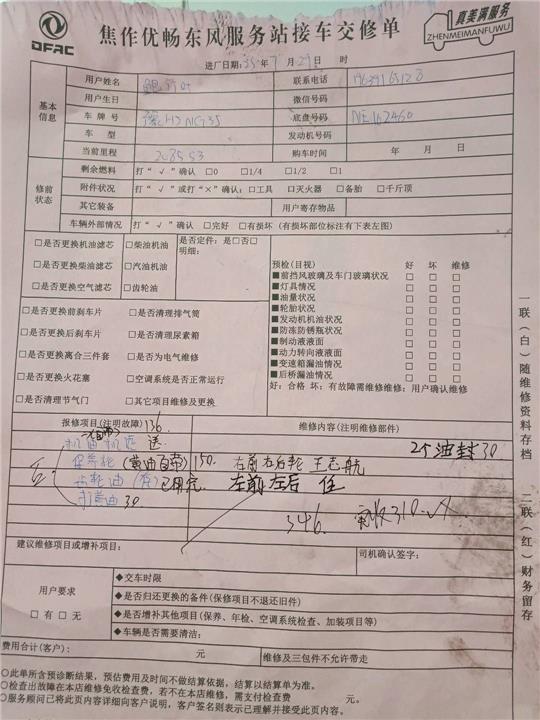 DFAC
焦作优畅东风服务站接车交修单
真美满服务
ZHENMEIMANFUWU
进厂日期: 年7月29日 时
基本信息
用户姓名
联系电话
用户生日
微信号码
车牌号 豫HDNG35
底盘号码 NE162460
车型
发动机号码
当前里程 208553
购车时间 年 月 日
修前状态
剩余燃料 打“√”确认 □0 □1/4 □1/2 □1
附件状况 打“√”或打“×”确认:□工具 □灭火器 □备胎 □千斤顶
其它装备
用户寄存物品
车辆外部情况 打“√”确认 □完好 □有损坏(有损坏部位标注有下表左图)
□是否更换机油滤芯 □柴油机油
□是否更换柴油滤芯 □汽油机油
□是否更换空气滤芯 □齿轮油
是否定件:是□否□
明细:
□是否更换前刹车片 □是否清理排气筒
□是否更换后刹车片 □是否清理尿素箱
□是否更换离合三件套 □是否为电气维修
□是否更换火花塞 □空调系统是否正常运行
□是否清理节气门 □其它项目维修及更换
预检(目视) 好 坏 维修
■前挡风玻璃及车门玻璃状况 □ □ □
■灯具情况 □ □ □
■油量状况 □ □ □
■轮胎状况 □ □ □
■发动机机油状况 □ □ □
■防冻防锈瓶状况 □ □ □
■制动液液面 □ □ □
■动力转向液液面 □ □ □
■变速箱漏油情况 □ □ □
■后桥漏油情况 □ □ □
好:合格 坏:有故障需维修维修:用户确认维修
报修项目(注明故障) 136
维修内容(注明维修部件)
(自带)
机油 机滤 送
2个油封30
保养轮(黄油自带)150. 右前右后轮 王志航
后
齿轮油(有)已用完 左前左后 任
打黄油30
346. 实收310
建议维修项目或增补项目:
司机确认签字:
用户要求
□有□无
◆交车时限
◆是否归还更换的备件(保修项目不退还旧件)
◆是否增补其他项目(保养、年检、空调系统检查、加装项目等)
◆车辆是否需要清洁:
费用合计(客户): 元
维修及三包件不允许带走
○此单所含预诊断结果,预估费用及时间不做结算依据,结算以结算单为准。
○检查出故障在本店维修免收检查费,若不在本店维修,需支付检查费 元。
○服务顾问已将此页内容详细向客户说明,客户签名则表示已理解并接受此页内容。
一联(白)随维修资料存档
二联(红)财务留存